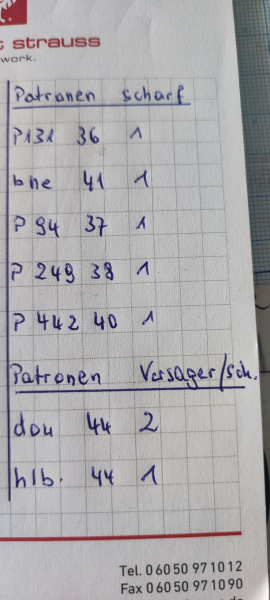 t strauss
work.
Patronen scharf
P131 36 1
bne 41 1
P 94 37 1
P 249 39 1
P 442 40 1
Patronen Versager/sch.
dou 44 2
hlb. 44 1
Tel. 0 60 50 97 10 12
Fax 0 60 50 97 10 90